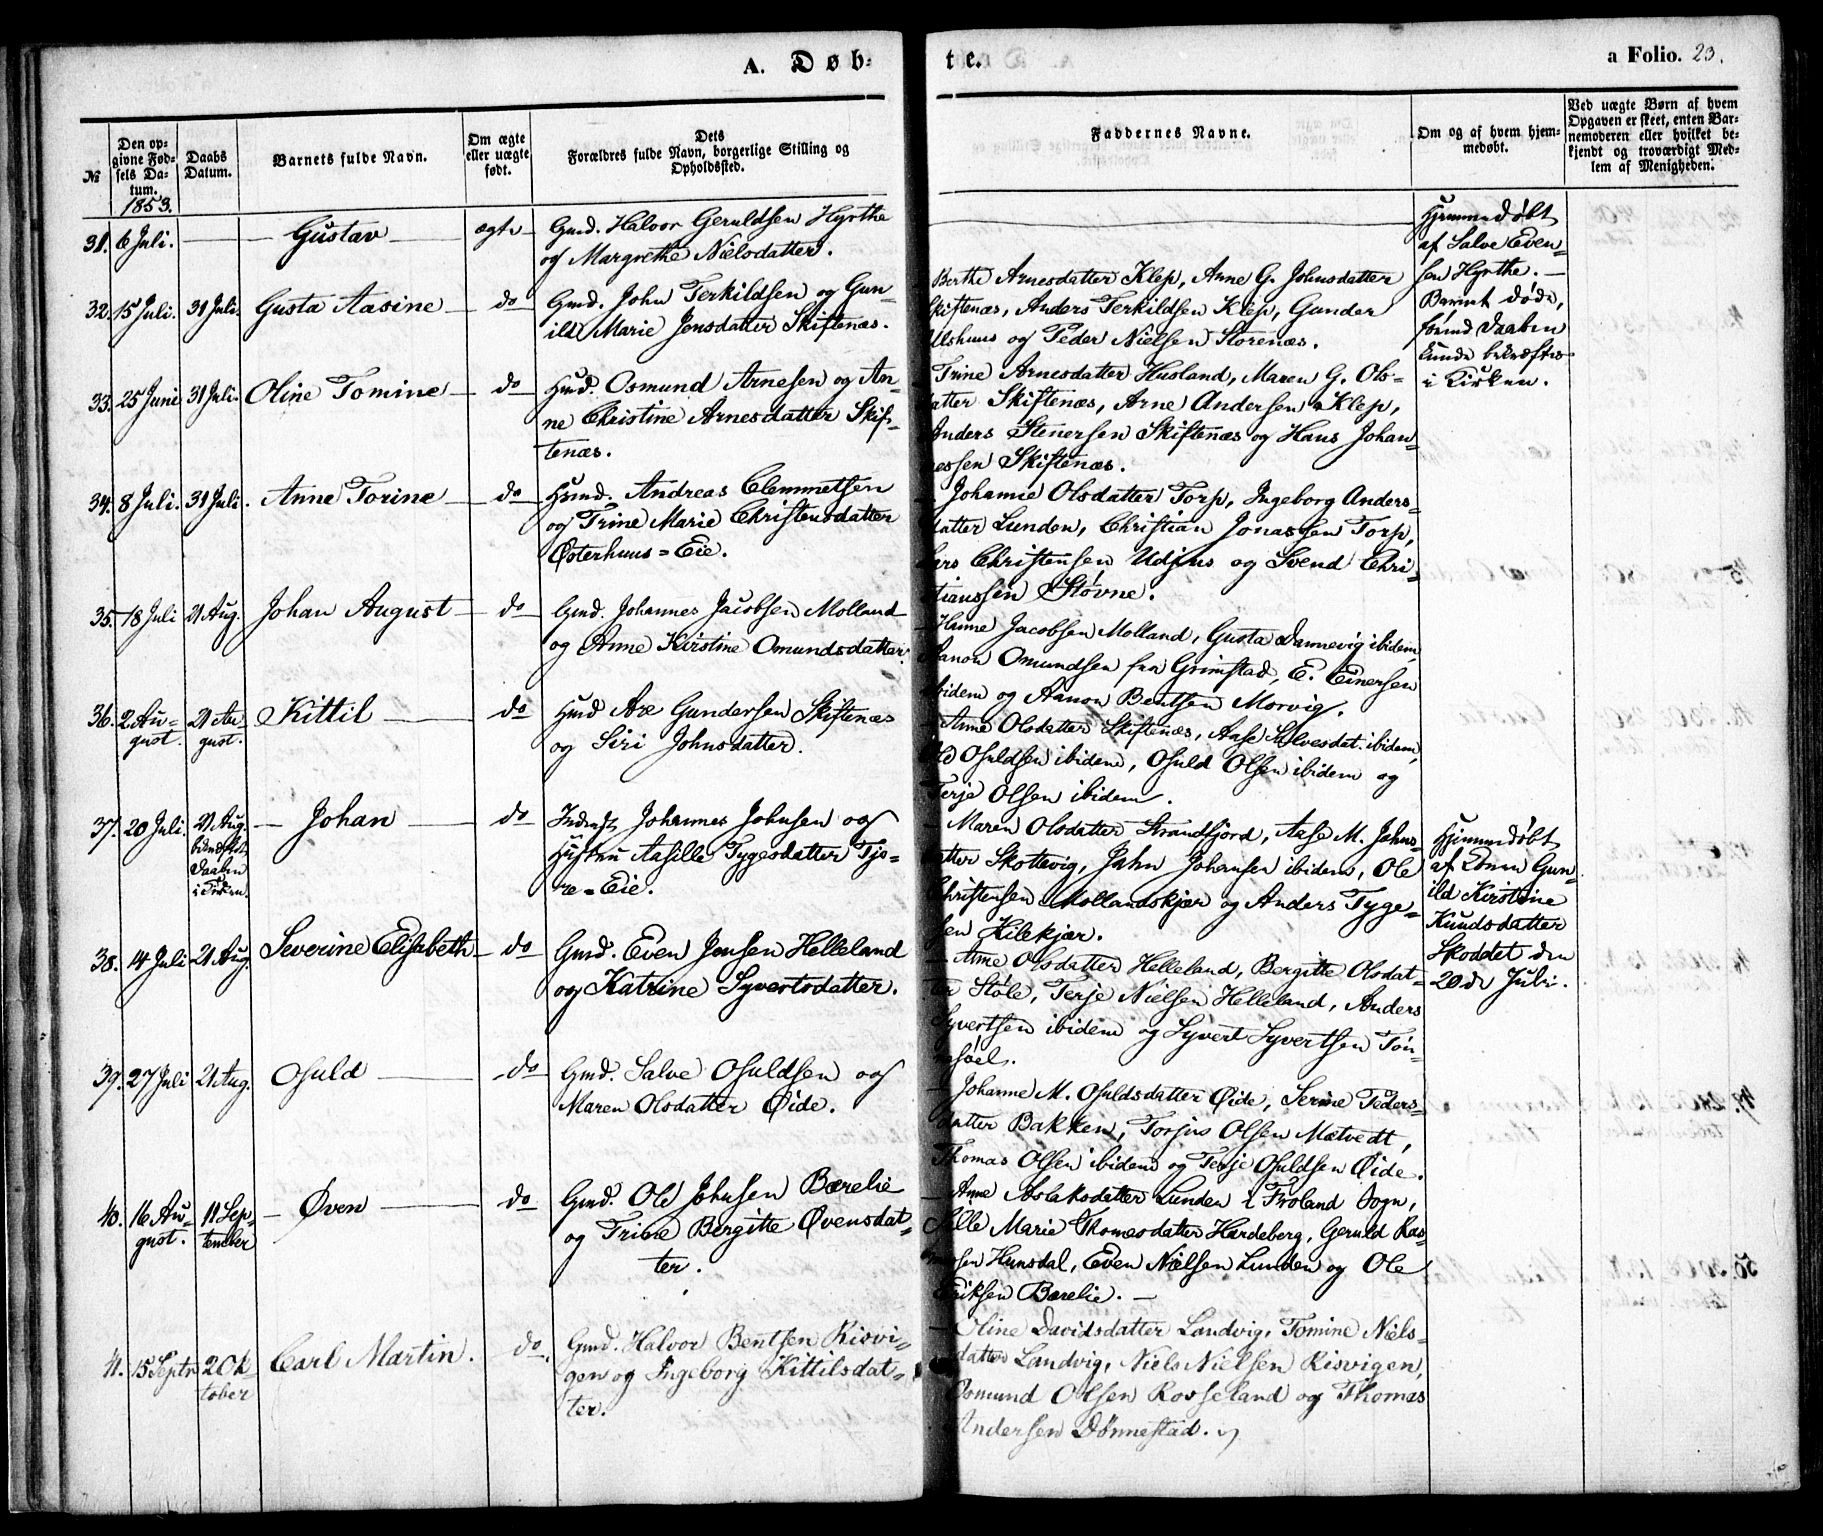 A. Døb-
te.
a Folio. 23.
№
Den op-
givne Fød-
sels Da-
tum.
1853.
Daabs
Datum.
Barnets fulde Navn.
Om ægte
eller uægte
født.
Dets
Forældres fulde Navn, borgerlige Stilling og
Opholdssted.
Faddernes Navne.
Om og af hvem hjem-
medøbt.
Ved uægte Børn af hvem
Opgaven er skeet, enten Bar-
nemoderen eller hvilket be-
kjendt og troværdigt Med-
lem af Menigheden.
31. 6 Juli. — Gustav — ægte
Gmd. Halvor Geruldsen Hyrthe
og Margrethe Nielsdatter.
Hjemmedøbt
af Salve Even-
sen Hyrthe. —
Barnet døde,
førend Daaben
kunde bekræftes
i Kirken.
32. 15 Juli. 31 Juli. Gusta Aasine — do
Gmd. John Terkildsen og Gun-
ild Marie Jensdatter Skiftenæs.
Berthe Arnesdatter Klep, Anne G. Johnsdatter
Skiftenæs, Anders Terkildsen Klep, Gunder
Ulshuus og Peder Nielsen Storenæs.
33. 25 Juni 31 Juli. Oline Tomine — do
Husmd. Osmund Arnesen og An-
ne Christine Arnesdatter Skif-
tenæs.
Trine Arnesdatter Husland, Maren G. Ols-
datter Skiftenæs, Arne Andersen Klep,
Anders Stenersen Skiftenæs og Hans Johan-
nessen Skiftenæs.
34. 8 Juli. 31 Juli. Anne Torine — do
Husmd. Andreas Clemmetsen
og Trine Marie Christensdatter
Østerhuus-Eie.
Johanne Olsdatter Torp, Ingeborg Anders-
datter Lunden, Christian Jonassen Torp,
Lars Christensen Udjus og Svend Chri-
stianssen Støvne.
35. 18 Juli 21 Aug. Johan August — do
Gmd. Johannes Jacobsen Molland
og Anne Kirstine Omundsdatter.
Hanne Jacobsen Molland, Gusta Dannevig ibidem,
Aanon Omundsen fra Grimstad, E. Einersen
ibidem og Aanon Bentsen Morvig.
36. 2 Au-
gust. 21 Au-
gust. Kittil — do
Husmd Axe Gundersen Skiftenæs
og Siri Johnsdatter.
Anne Olsdatter Skiftenæs, Aase Salvesdat. ibidem,
Osuldsen ibidem, Osuld Olsen ibidem og
Terje Olsen ibidem.
37. 20 Juli. 21 Aug.
bekræftet
Daaben
i Kirken. — Johan — do
Inderst Johannes Johnsen og
Hustru Aasille Tygesdatter Tjo-
re-Eie.
Maren Olsdatter Strandfjord, Aase M. Jahns-
datter Skottevig, Jahn Johansen ibidem, Ole
Christensen Mollandskjær og Anders Tyge-
sen Kilekjær.
Hjemmedøbt
af Konen Gun-
ild Kirstine
Knudsdatter
Skoddet den
20de Juli.
38. 14 Juli 21 Aug. Severine Elisabeth — do
Gmd. Even Jensen Helleland
og Katrine Syvertsdatter.
Anne Olsdatter Helleland, Bergitte Olsdat-
ter Støle, Terje Nielsen Helleland, Anders
Syvertsen ibidem og Syvert Syvertsen Tøn-
nesøel.
39. 27 Juli 21 Aug. Osuld — do
Gmd. Salve Osuldsen og
Maren Olsdatter Øide.
Johanne M. Osuldsdatter Øide, Serine Peders-
datter Bakken, Torjus Olsen Mætvedt,
Thomas Olsen ibidem og Terje Osuldsen Øide.
40. 16 Au-
gust. 11 Sep-
tember — Øven — do
Gmd. Ole Johnsen Bærelie
og Trine Bergitte Øvensdat-
ter.
Anne Aslaksdatter Lunden i Froland Sogn,
Sille Marie Thomesdatter Hardeberg, Geruld Ras-
mussen Hunsdal, Even Nielsen Lunden og Ole
Eriksen Bærelie. —
41. 15 Septr 2 Ok-
tober Carl Martin. do
Gmd. Halvor Bentsen Risvi-
gen og Ingeborg Kittilsdat-
ter.
Oline Davidsdatter Landvig, Tomine Niels-
datter Landvig, Niels Nielsen Risvigen,
Osmund Olsen Rosseland og Thomas
Andersen Dønnestad.